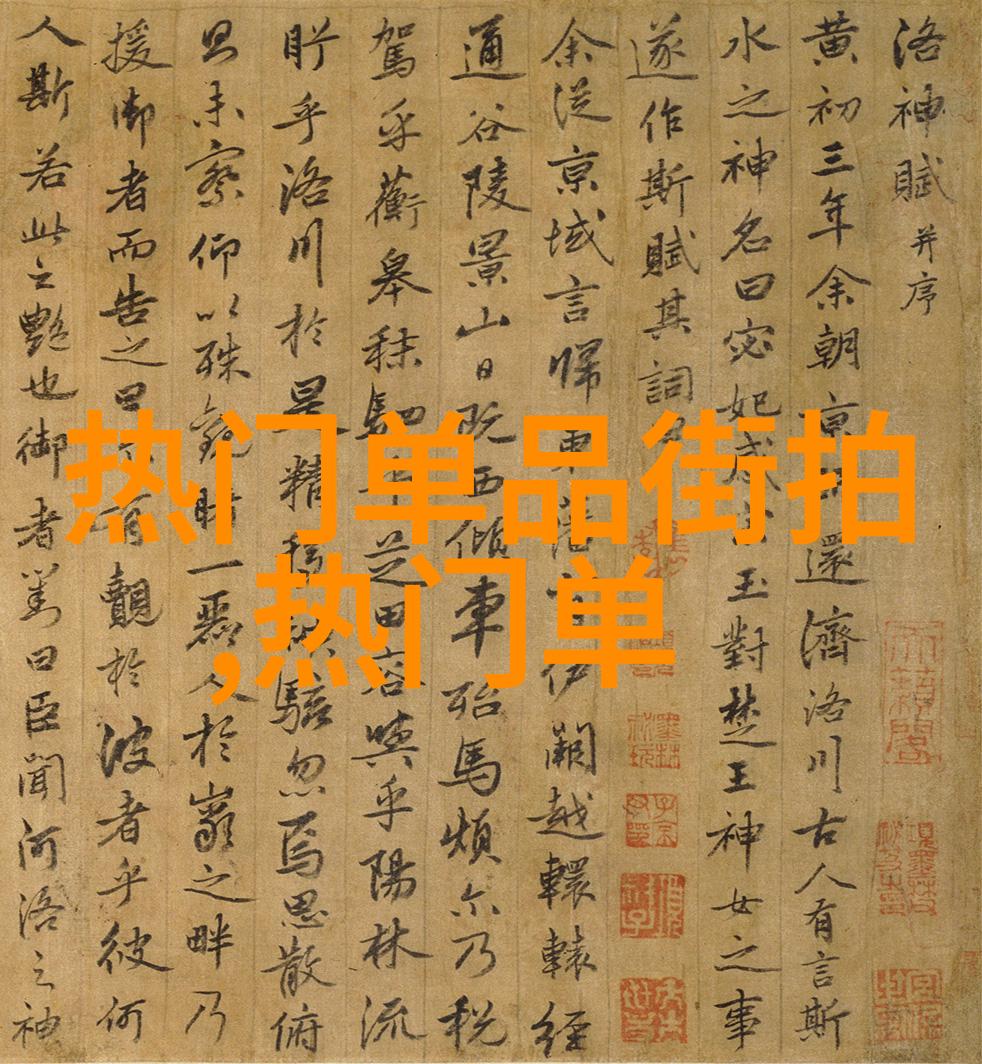 洛神賦并序
黄初三年余朝京還濟洛川古人有言斯
水之神名曰宓妃感玉對楚王神女之事
遂作斯賦其詞
余從京域言歸東藩伊闕越轘轅經
通谷陵景山日既西傾車殆馬煩尓乃税
駕乎蘅皋秣駟乎芝田容與乎陽林流
眄乎洛川於是精移駭忽焉思散俯
則未察仰以殊觀睹一麗人於巖之畔乃
援御者而告之曰有覿於彼者乎彼何
人斯若此之艷也御者對曰臣聞河洛之神
热门单品街拍
,热门单